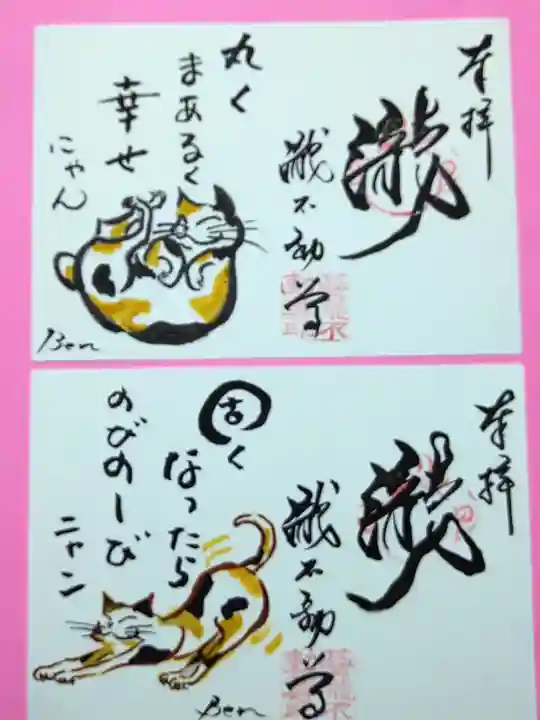 奉拝
瀧
瀧不動尊
丸く
まあるく
幸せ
にゃん
Ben
奉拝
瀧
瀧不動尊
固く
なったら
のびのーび
ニャン
Ben